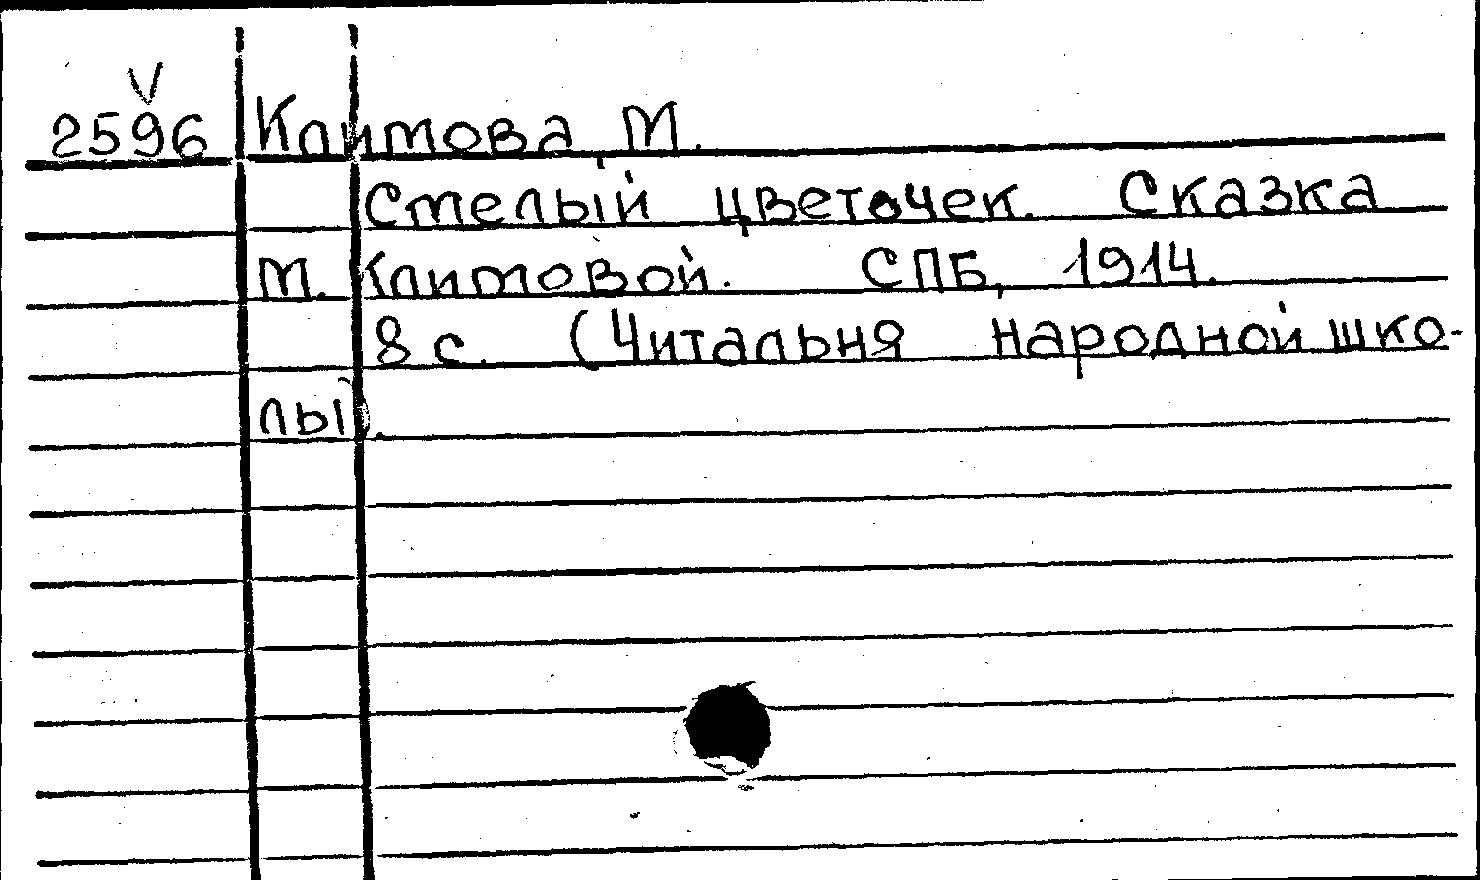 V
2596 Климова, М.
Смелый цветочек. Сказка
М. Климовой. СПБ, 1914.
8 с. (Читальня народной шко-
лы).